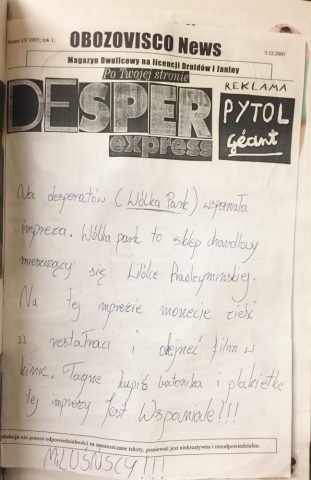 Numer 13/2003; rok 1;
OBOZOVISCO News
3.12.2003
Magazyn Dwulicowy na licencji Druidów i Janiny
Po Twojej stronie
DESPER
express
REKLAMA
PYTOL
Géant
Na desperatów (Wólka Park) wspaniała
impreza. Wólka park to sklep chandlowy
mieszczący się Wólce
Na tej imprezie monecie zieść
w restałraci i obejneć film w
kinie. Tagne kupiś batonika i plakietkę
tej imprezy. Jest Wspaniale!!!
redakcja nie ponosi odpowiedzialności za zamieszczane teksty, ponieważ jest niekreatywna i nieodpowiedzialna.
MILUŚŃSCY!!!